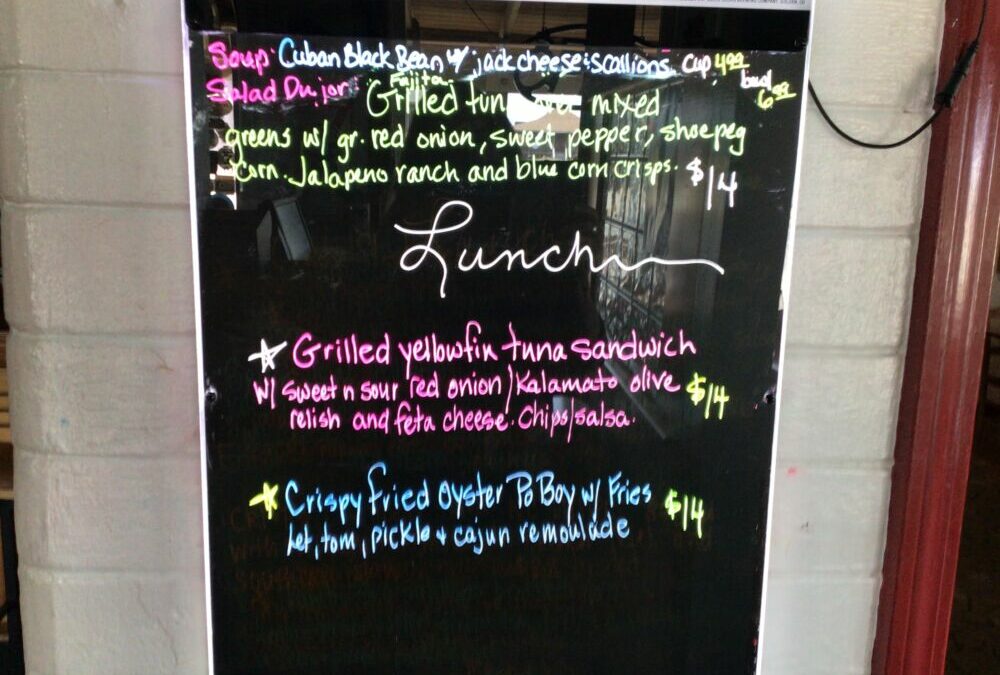 Soup: Cuban Black Bean w/ jack cheese & scallions. cup 4.99 bowl 6.99
Salad Du jor: Fajita
Grilled tuna over mixed
greens w/ gr. red onion, sweet pepper, shoepeg
corn. Jalapeno ranch and blue corn crisps. $14
Lunch
Grilled yellowfin tuna sandwich
w/ sweet n sour red onion/Kalamato olive $14
relish and feta cheese. Chips/salsa.
Crispy fried oyster Po Boy w/ Fries $14
Let, tom, pickle & cajun remoulade